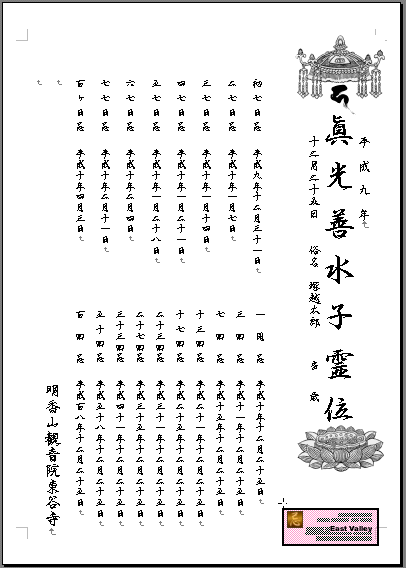 平成九年
眞光善水子靈位
十二月二十五日 俗名 塚越太郎
歳
初七日忌 平成九年十二月三十一日
二七日忌 平成十年一月七日
三七日忌 平成十年一月十四日
四七日忌 平成十年一月二十一日
五七日忌 平成十年一月二十八日
六七日忌 平成十年二月四日
七七日忌 平成十年二月十一日
百ヶ日忌 平成十年四月三日
一周忌 平成十年十二月二十五日
三回忌 平成十一年十二月二十五日
七回忌 平成十五年十二月二十五日
十三回忌 平成二十一年十二月二十五日
十七回忌 平成二十五年十二月二十五日
二十三回忌 平成三十一年十二月二十五日
二十七回忌 平成三十五年十二月二十五日
三十三回忌 平成四十一年十二月二十五日
五十回忌 平成五十八年十二月二十五日
百回忌 平成百八年十二月二十五日
明香山観音院東谷寺
East Valley